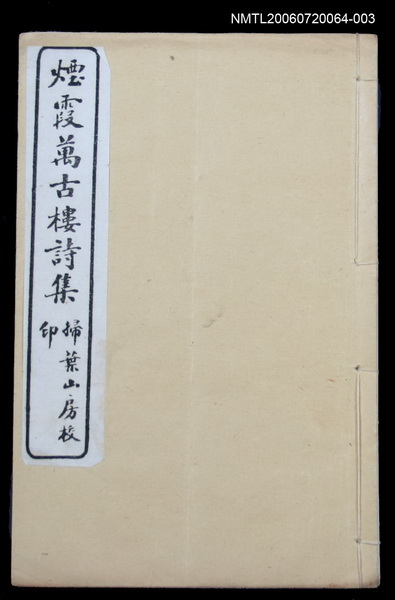 NMTL20060720064-003
煙霞萬古樓詩集
掃葉山房校
印